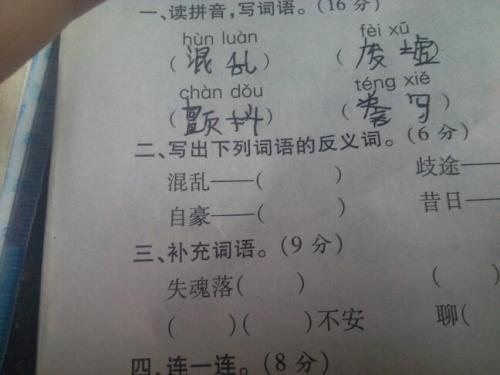 一、读拼音,写词语。(16分)
hùn luàn fèi xū
(混乱) (废墟)
chàn dǒu téng xié
(颤抖) ( )
二、写出下列词语的反义词。(6分)
混乱——( ) 歧途—
自豪——( ) 昔日—
三、补充词语。(9分)
失魂落( ) (
( )( )不安 聊(
四、连一连。(8分)